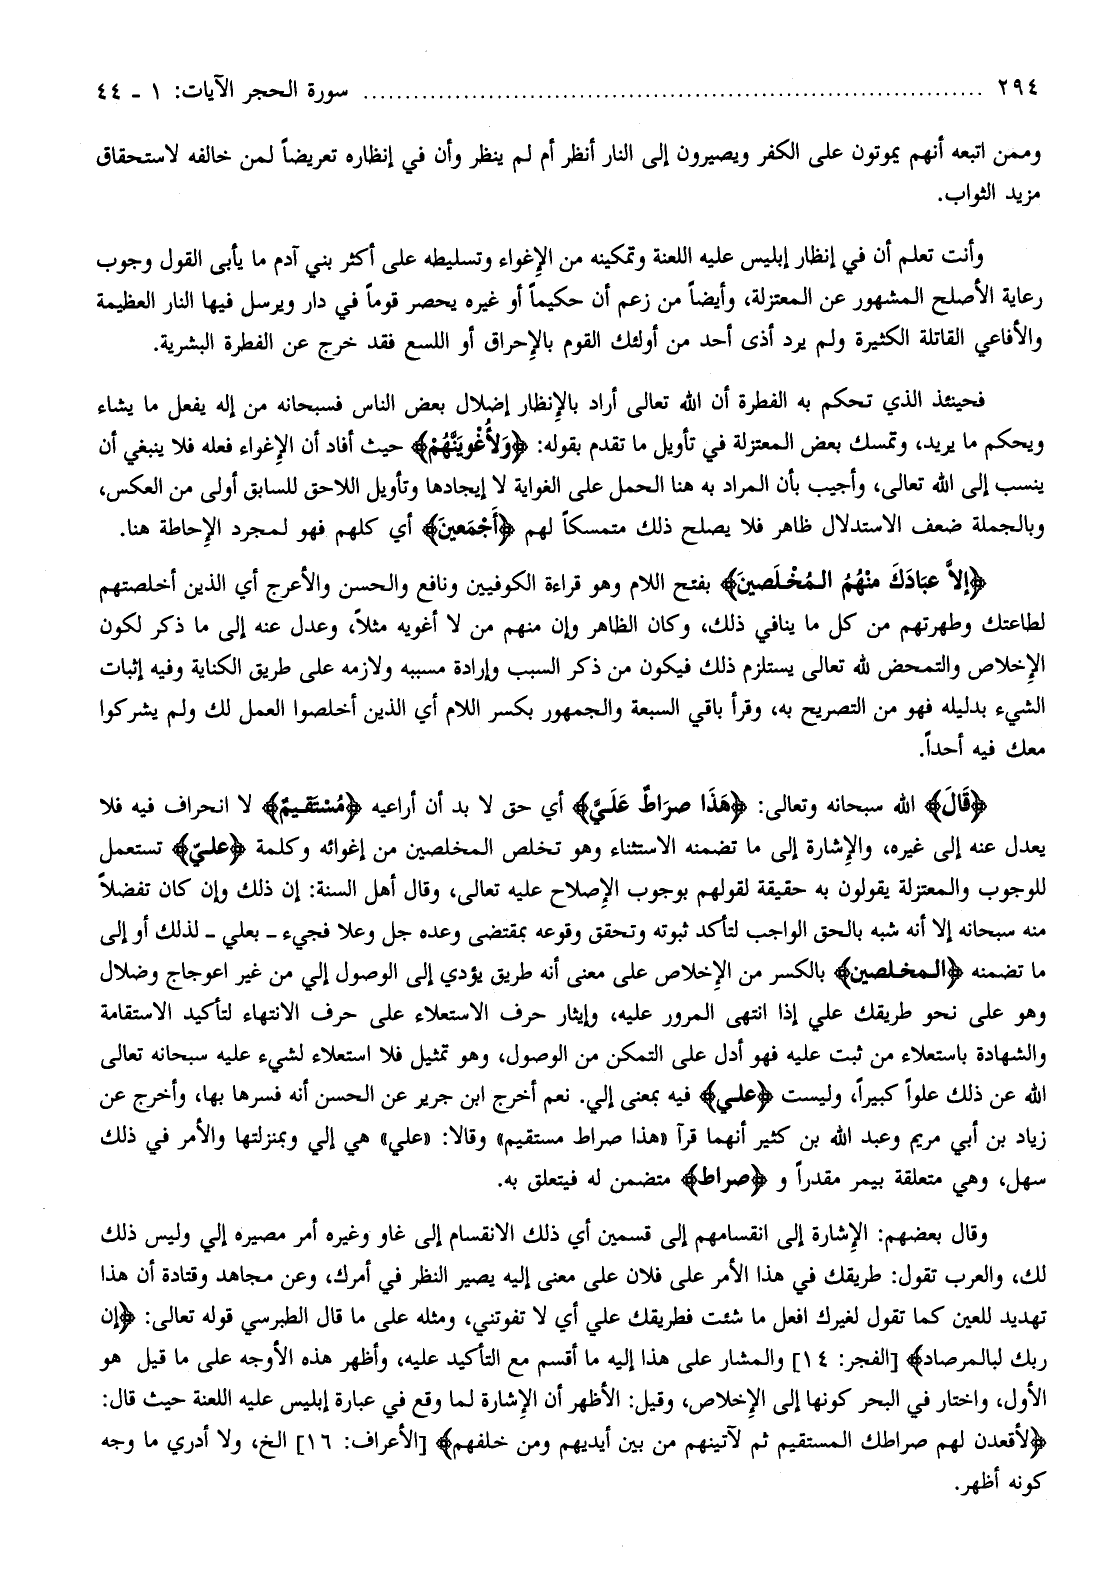 ٢٩٤ ........................................................................ سورة الحجر الآيات: ١ - ٤٤
وممن اتبعه أنهم يموتون على الكفر ويصيرون إلى النار أنظر أم لم ينظر وأن في إنظاره تعريضاً لمن خالفه لاستحقاق
مزيد الثواب.
وأنت تعلم أن في إنظار إبليس عليه اللعنة وتمكينه من الإغواء وتسليطه على أكثر بني آدم ما يأبى القول وجوب
رعاية الأصلح المشهور عن المعتزلة، وأيضاً من زعم أن حكيماً أو غيره يحصر قوماً في دار ويرسل فيها النار العظيمة
والأفاعي القاتلة الكثيرة ولم يرد أذى أحد من أولئك القوم بالإحراق أو اللسع فقد خرج عن الفطرة البشرية.
فحينئذ الذي تحكم به الفطرة أن الله تعالى أراد بالإنظار إضلال بعض الناس فسبحانه من إله يفعل ما يشاء
ويحكم ما يريد، وتمسك بعض المعتزلة في تأويل ما تقدم بقوله: ﴿وَلأُغْوِيَنَّهُمْ﴾ حيث أفاد أن الإغواء فعله فلا ينبغي أن
ينسب إلى الله تعالى، وأجيب بأن المراد به هنا الحمل على الغواية لا إيجادها وتأويل اللاحق للسابق أولى من العكس،
وبالجملة ضعف الاستدلال ظاهر فلا يصلح ذلك متمسكاً لهم ﴿أَجْمَعينَ﴾ أي كلهم فهو لمجرد الإحاطة هنا.
﴿إلاَّ عبَادَكَ منْهُمُ المُخْلَصينَ﴾ بفتح اللام وهو قراءة الكوفيين ونافع والحسن والأعرج أي الذين أخلصتهم
لطاعتك وطهرتهم من كل ما ينافي ذلك، وكان الظاهر وإن منهم من لا أغويه مثلاً، وعدل عنه إلى ما ذكر لكون
الإخلاص والتمحض لله تعالى يستلزم ذلك فيكون من ذكر السبب وإرادة مسببه ولازمه على طريق الكناية وفيه إثبات
الشيء بدليله فهو من التصريح به، وقرأ باقي السبعة والجمهور بكسر اللام أي الذين أخلصوا العمل لك ولم يشركوا
معك فيه أحداً.
﴿قَالَ﴾ الله سبحانه وتعالى: ﴿هَذَا صرَاطٌ عَلَيَّ﴾ أي حق لا بد أن أراعيه ﴿مُسْتَقيمٌ﴾ لا انحراف فيه فلا
يعدل عنه إلى غيره، والإشارة إلى ما تضمنه الاستثناء وهو تخلص المخلصين من إغوائه وكلمة ﴿عليّ﴾ تستعمل
للوجوب والمعتزلة يقولون به حقيقة لقولهم بوجوب الإصلاح عليه تعالى، وقال أهل السنة: إن ذلك وإن كان تفضلاً
منه سبحانه إلا أنه شبه بالحق الواجب لتأكد ثبوته وتحقق وقوعه بمقتضى وعده جل وعلا فجيء ـ بعلي ـ لذلك أو إلى
ما تضمنه ﴿المخلصين﴾ بالكسر من الإخلاص على معنى أنه طريق يؤدي إلى الوصول إلي من غير اعوجاج وضلال
وهو على نحو طريقك علي إذا انتهى المرور عليه، وإيثار حرف الاستعلاء على حرف الانتهاء لتأكيد الاستقامة
والشهادة باستعلاء من ثبت عليه فهو أدل على التمكن من الوصول، وهو تمثيل فلا استعلاء لشيء عليه سبحانه تعالى
الله عن ذلك علواً كبيراً، وليست ﴿علي﴾ فيه بمعنى إلي. نعم أخرج ابن جرير عن الحسن أنه فسرها بها، وأخرج عن
زياد بن أبي مريم وعبد الله بن كثير أنهما قرآ «هذا صراط مستقيم» وقالا: «علي» هي إلي وبمنزلتها والأمر في ذلك
سهل، وهي متعلقة بيمر مقدراً و ﴿صراط﴾ متضمن له فيتعلق به.
وقال بعضهم: الإشارة إلى انقسامهم إلى قسمين أي ذلك الانقسام إلى غاو وغيره أمر مصيره إلي وليس ذلك
لك، والعرب تقول: طريقك في هذا الأمر على فلان على معنى إليه يصير النظر في أمرك، وعن مجاهد وقتادة أن هذا
تهديد للعين كما تقول لغيرك افعل ما شئت فطريقك علي أي لا تفوتني، ومثله على ما قال الطبرسي قوله تعالى: ﴿إن
ربك لبالمرصاد﴾ [الفجر: ١٤] والمشار على هذا إليه ما أقسم مع التأكيد عليه، وأظهر هذه الأوجه على ما قيل هو
الأول، واختار في البحر كونها إلى الإخلاص، وقيل: الأظهر أن الإشارة لما وقع في عبارة إبليس عليه اللعنة حيث قال:
﴿لأقعدن لهم صراطك المستقيم ثم لآتينهم من بين أيديهم ومن خلفهم﴾ [الأعراف: ١٦] الخ، ولا أدري ما وجه
كونه أظهر.